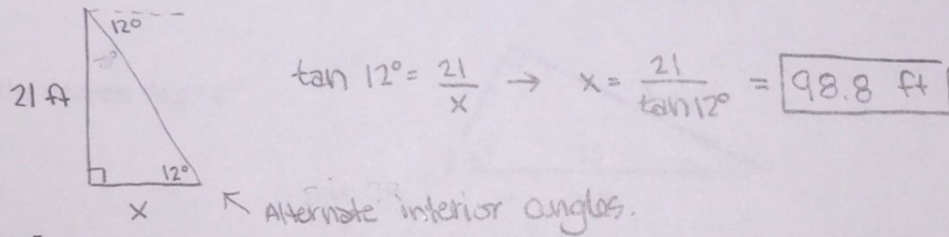 12°
21 ft
tan 12° = 21/x → x = 21/tan 12° = 98.8 ft
12°
x
Alternate interior angles.